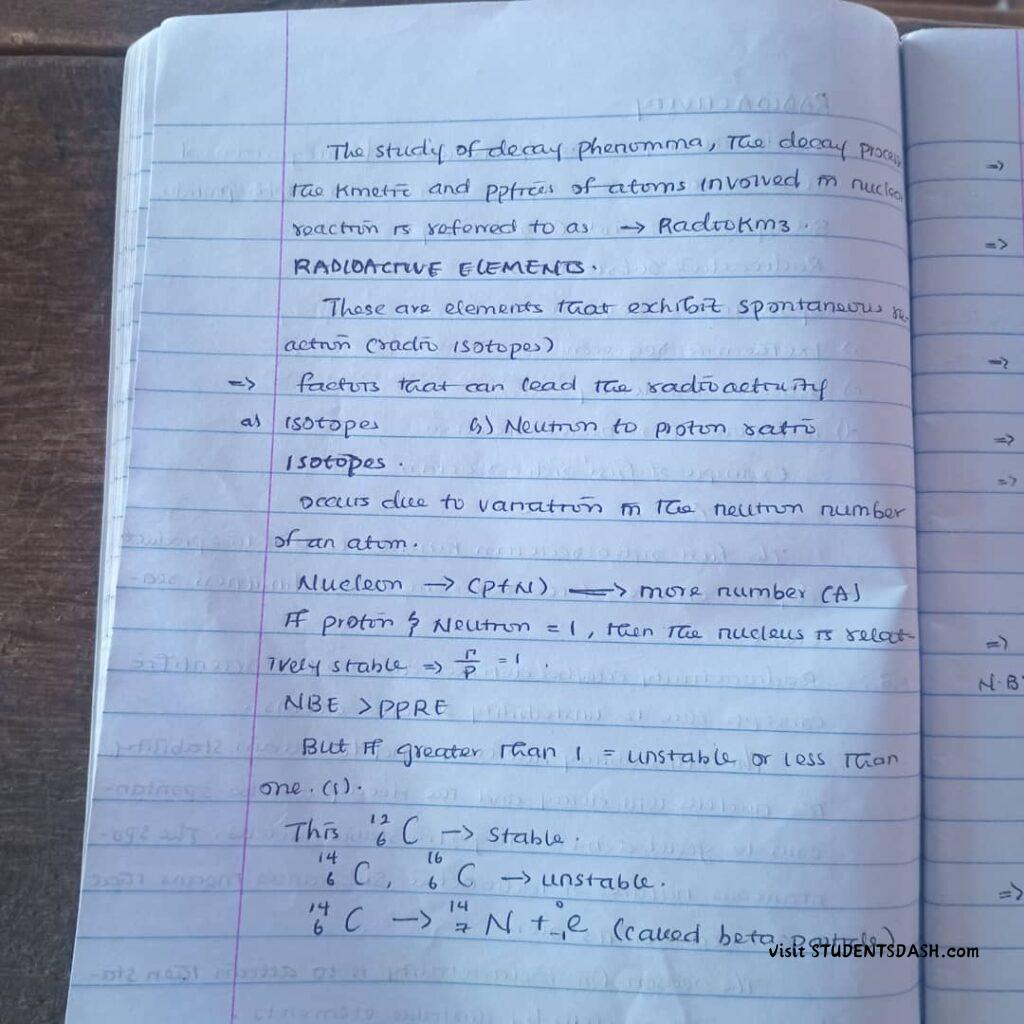 The study of decay phenomma, The decay process
the kmetic and pptties of atoms involved in nuclear
reaction is referred to as → Radiokm3.
RADIOACTIVE ELEMENTS.
These are elements that exhibit spontaneous re-
action (radio isotopes)
=> factors that can lead the radioactivity
a) isotopes b) Neutron to proton ratio
Isotopes.
occurs due to variation in the neutron number
of an atom.
Nucleon → (P+N) ⟶ more number (A)
If proton & Neutron = 1, then the nucleus is relat-
ively stable => n/p = 1.
NBE > PPRE
But if greater than 1 = unstable or less than
one. (1).
This ¹²₆C → stable.
¹⁴₆C, ¹⁶₆C → unstable.
¹⁴₆C → ¹⁴₇N + ⁰₋₁e (called beta particle)
visit STUDENTSDASH.com
=>
=>
=>
=>
=>
=>
N.B
=>